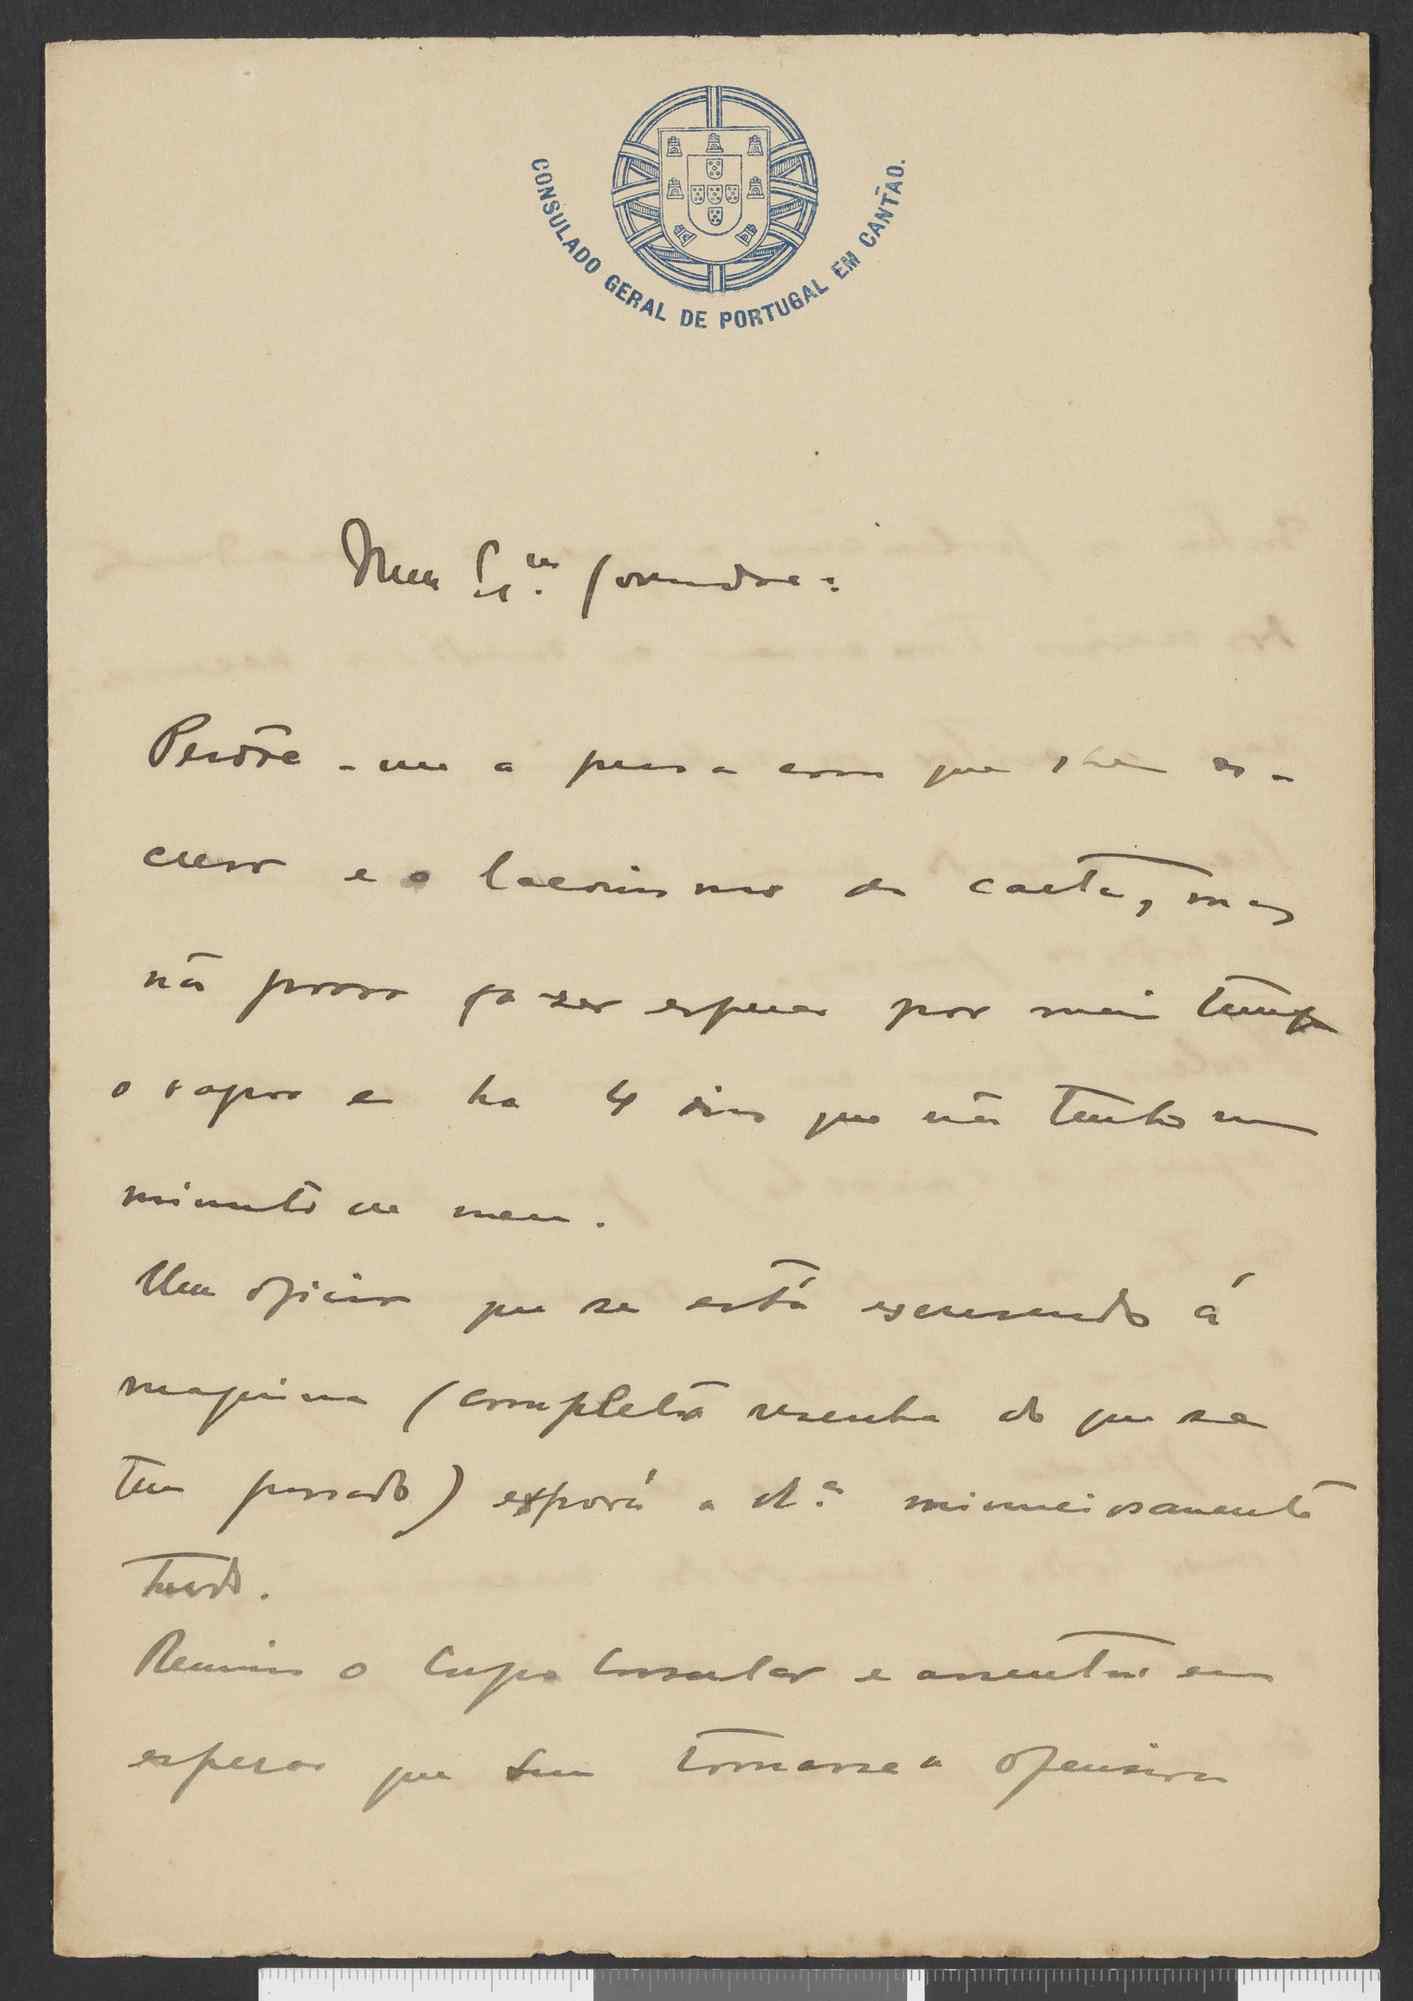 CONSULADO GERAL DE PORTUGAL EM CANTÃO.
Meu
Perdôe-me a pressa com que lhe es-
crevo e o laconismo da carta, mas
não posso fazer esperar por mais tempo
o vapor e ha 4 dias que não tenho um
minuto de meu.
Um oficio que se está escrevendo á
maquina (completa resenha do que se
tem passado) exporá a V.ª minuciosamente
tudo.
Reuniu o Corpo Consular e assentou em
esperar que Sun tomasse a ofensiva